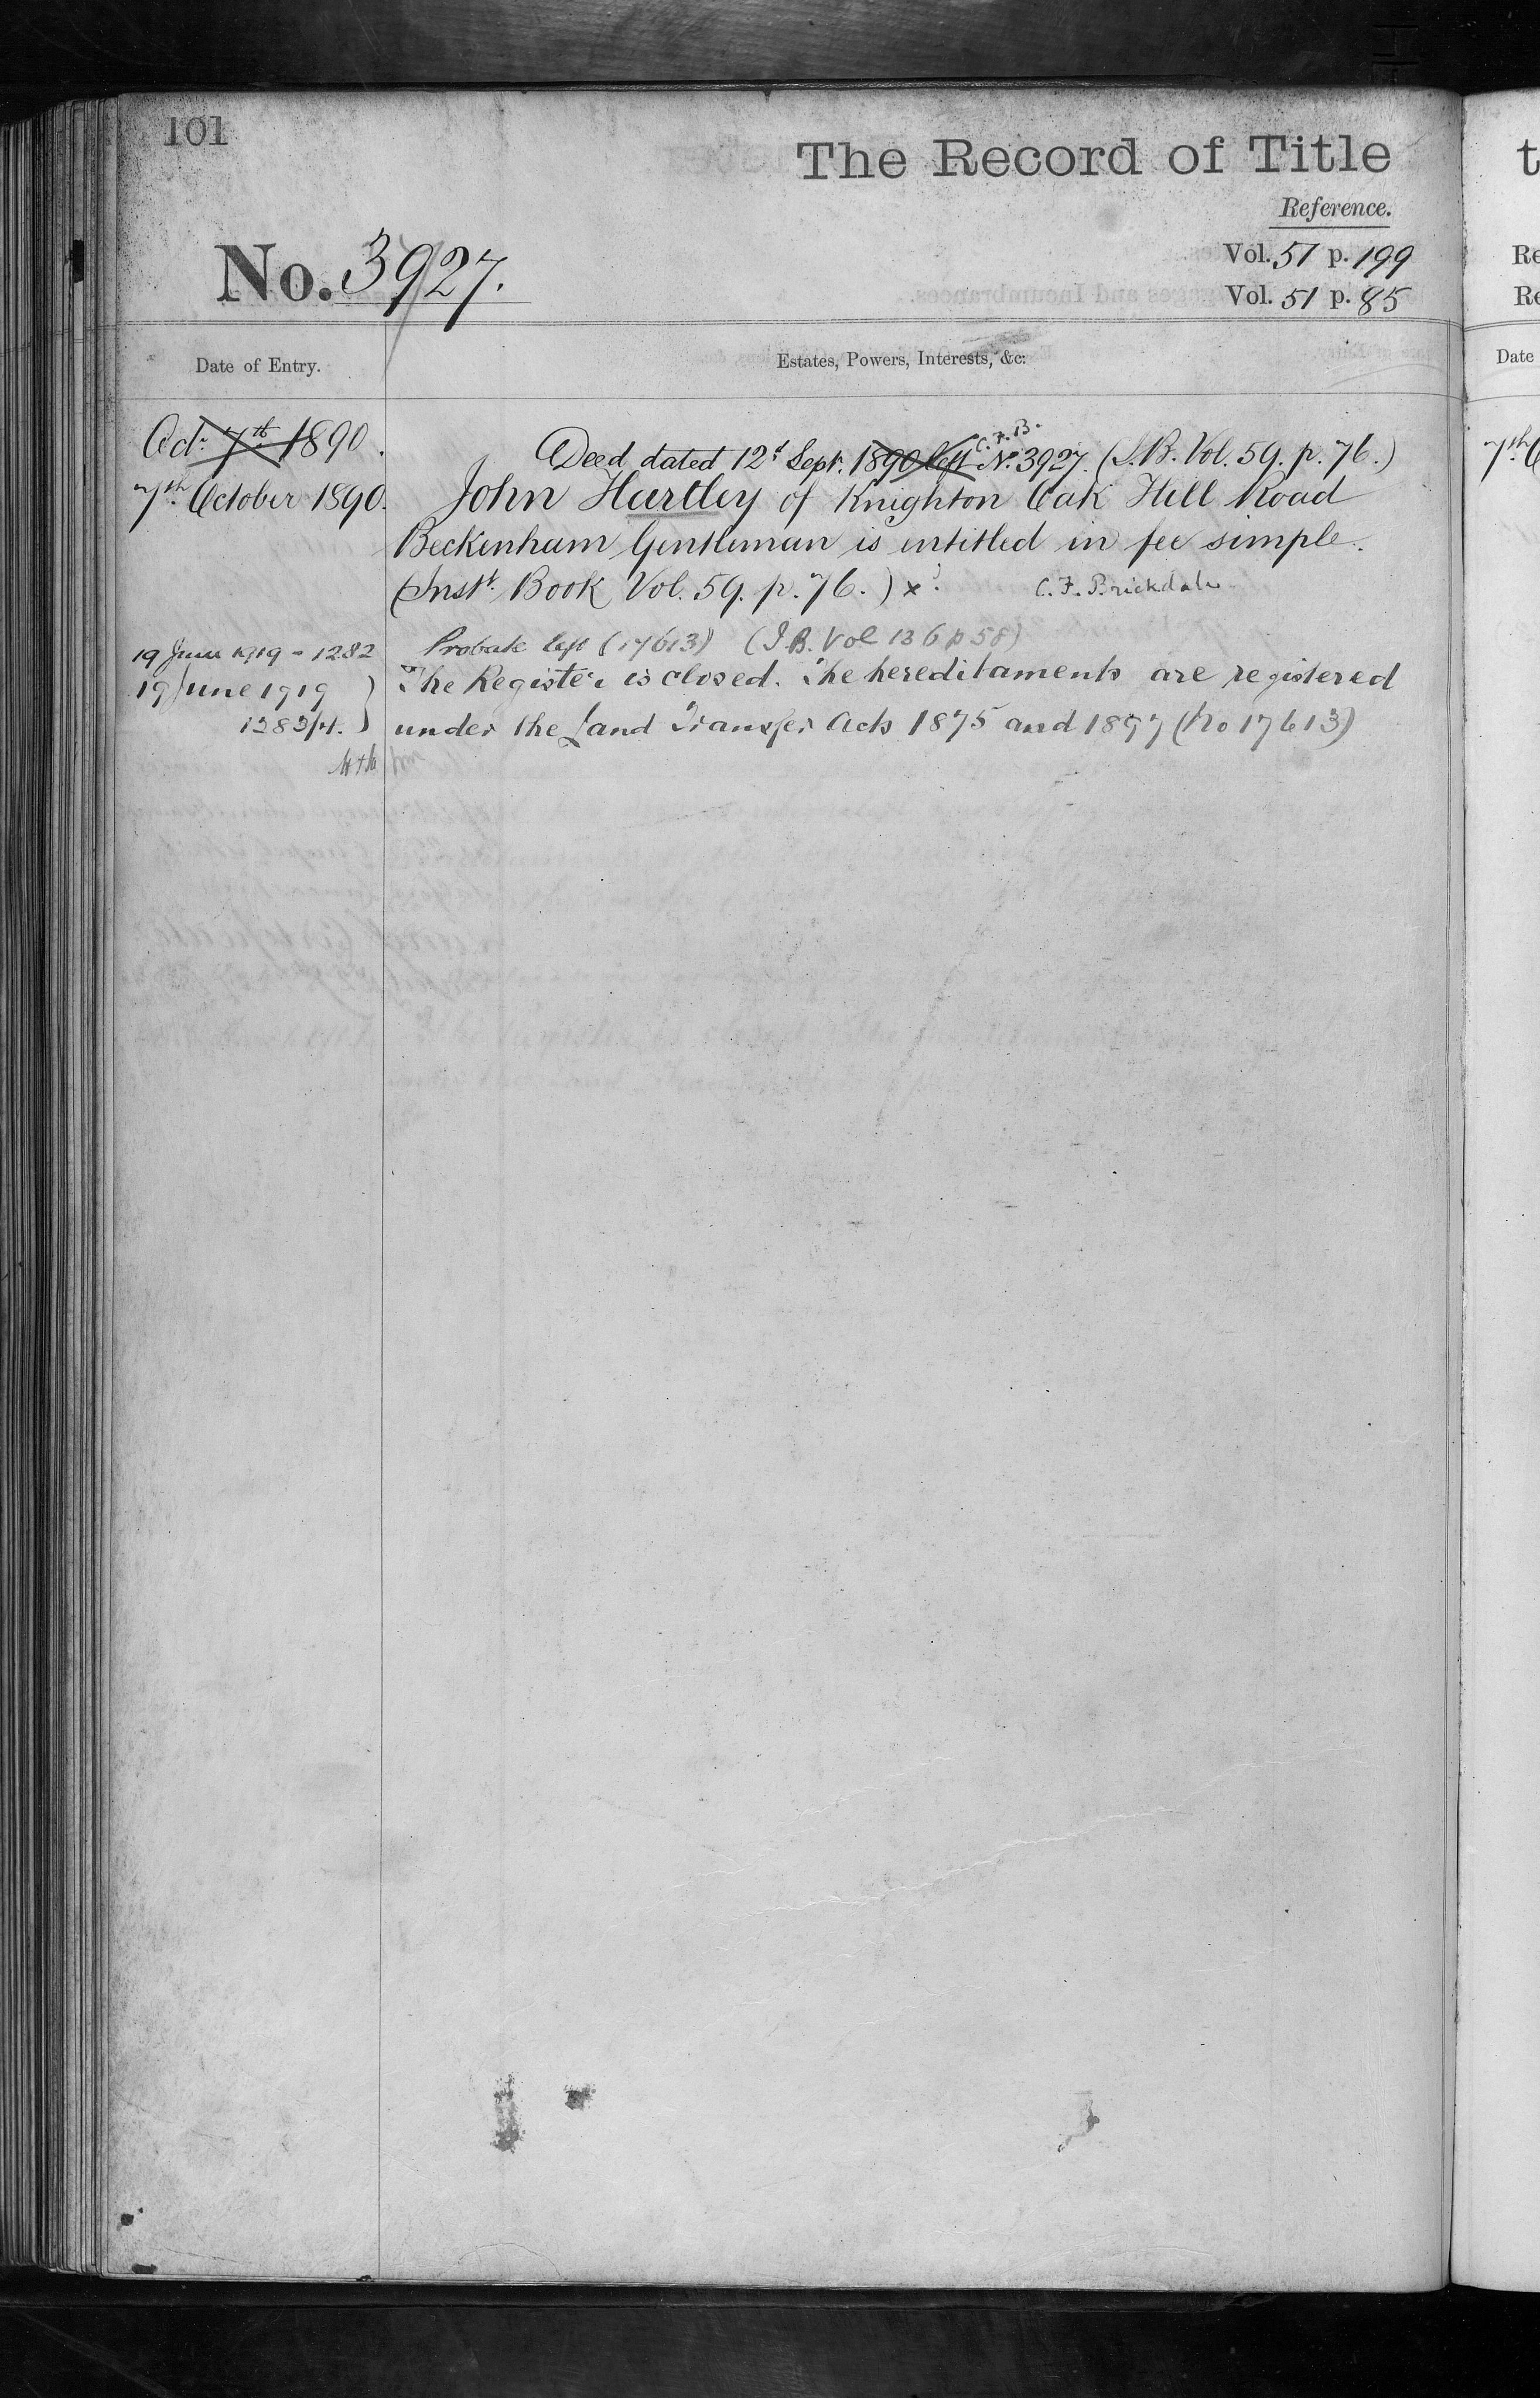 101
The Record of Title
Reference.
No. 3927.
Vol. 51 p. 199
Vol. 51 p. 85
Date of Entry.
Estates, Powers, Interests, &c:
Oct. 7th 1890.
C. F. B.
Deed dated 12th Sept. 1890 left No. 3927. (I.B. Vol. 59. p. 76.)
7th October 1890.
John Hartley of Knighton Oak Hill Road
Beckenham Gentleman is entitled in fee simple.
(Inst. Book Vol. 59. p. 76.) x
C. F. Brickdale
19 June 1919 - 1282
Probate left (17613) (I.B. Vol 136 p 58)
19 June 1919
The Register is closed. The hereditaments are registered
1283/4.
under the Land Transfer Acts 1875 and 1897 (No 17613)
t
Re
Re
Date
7th O